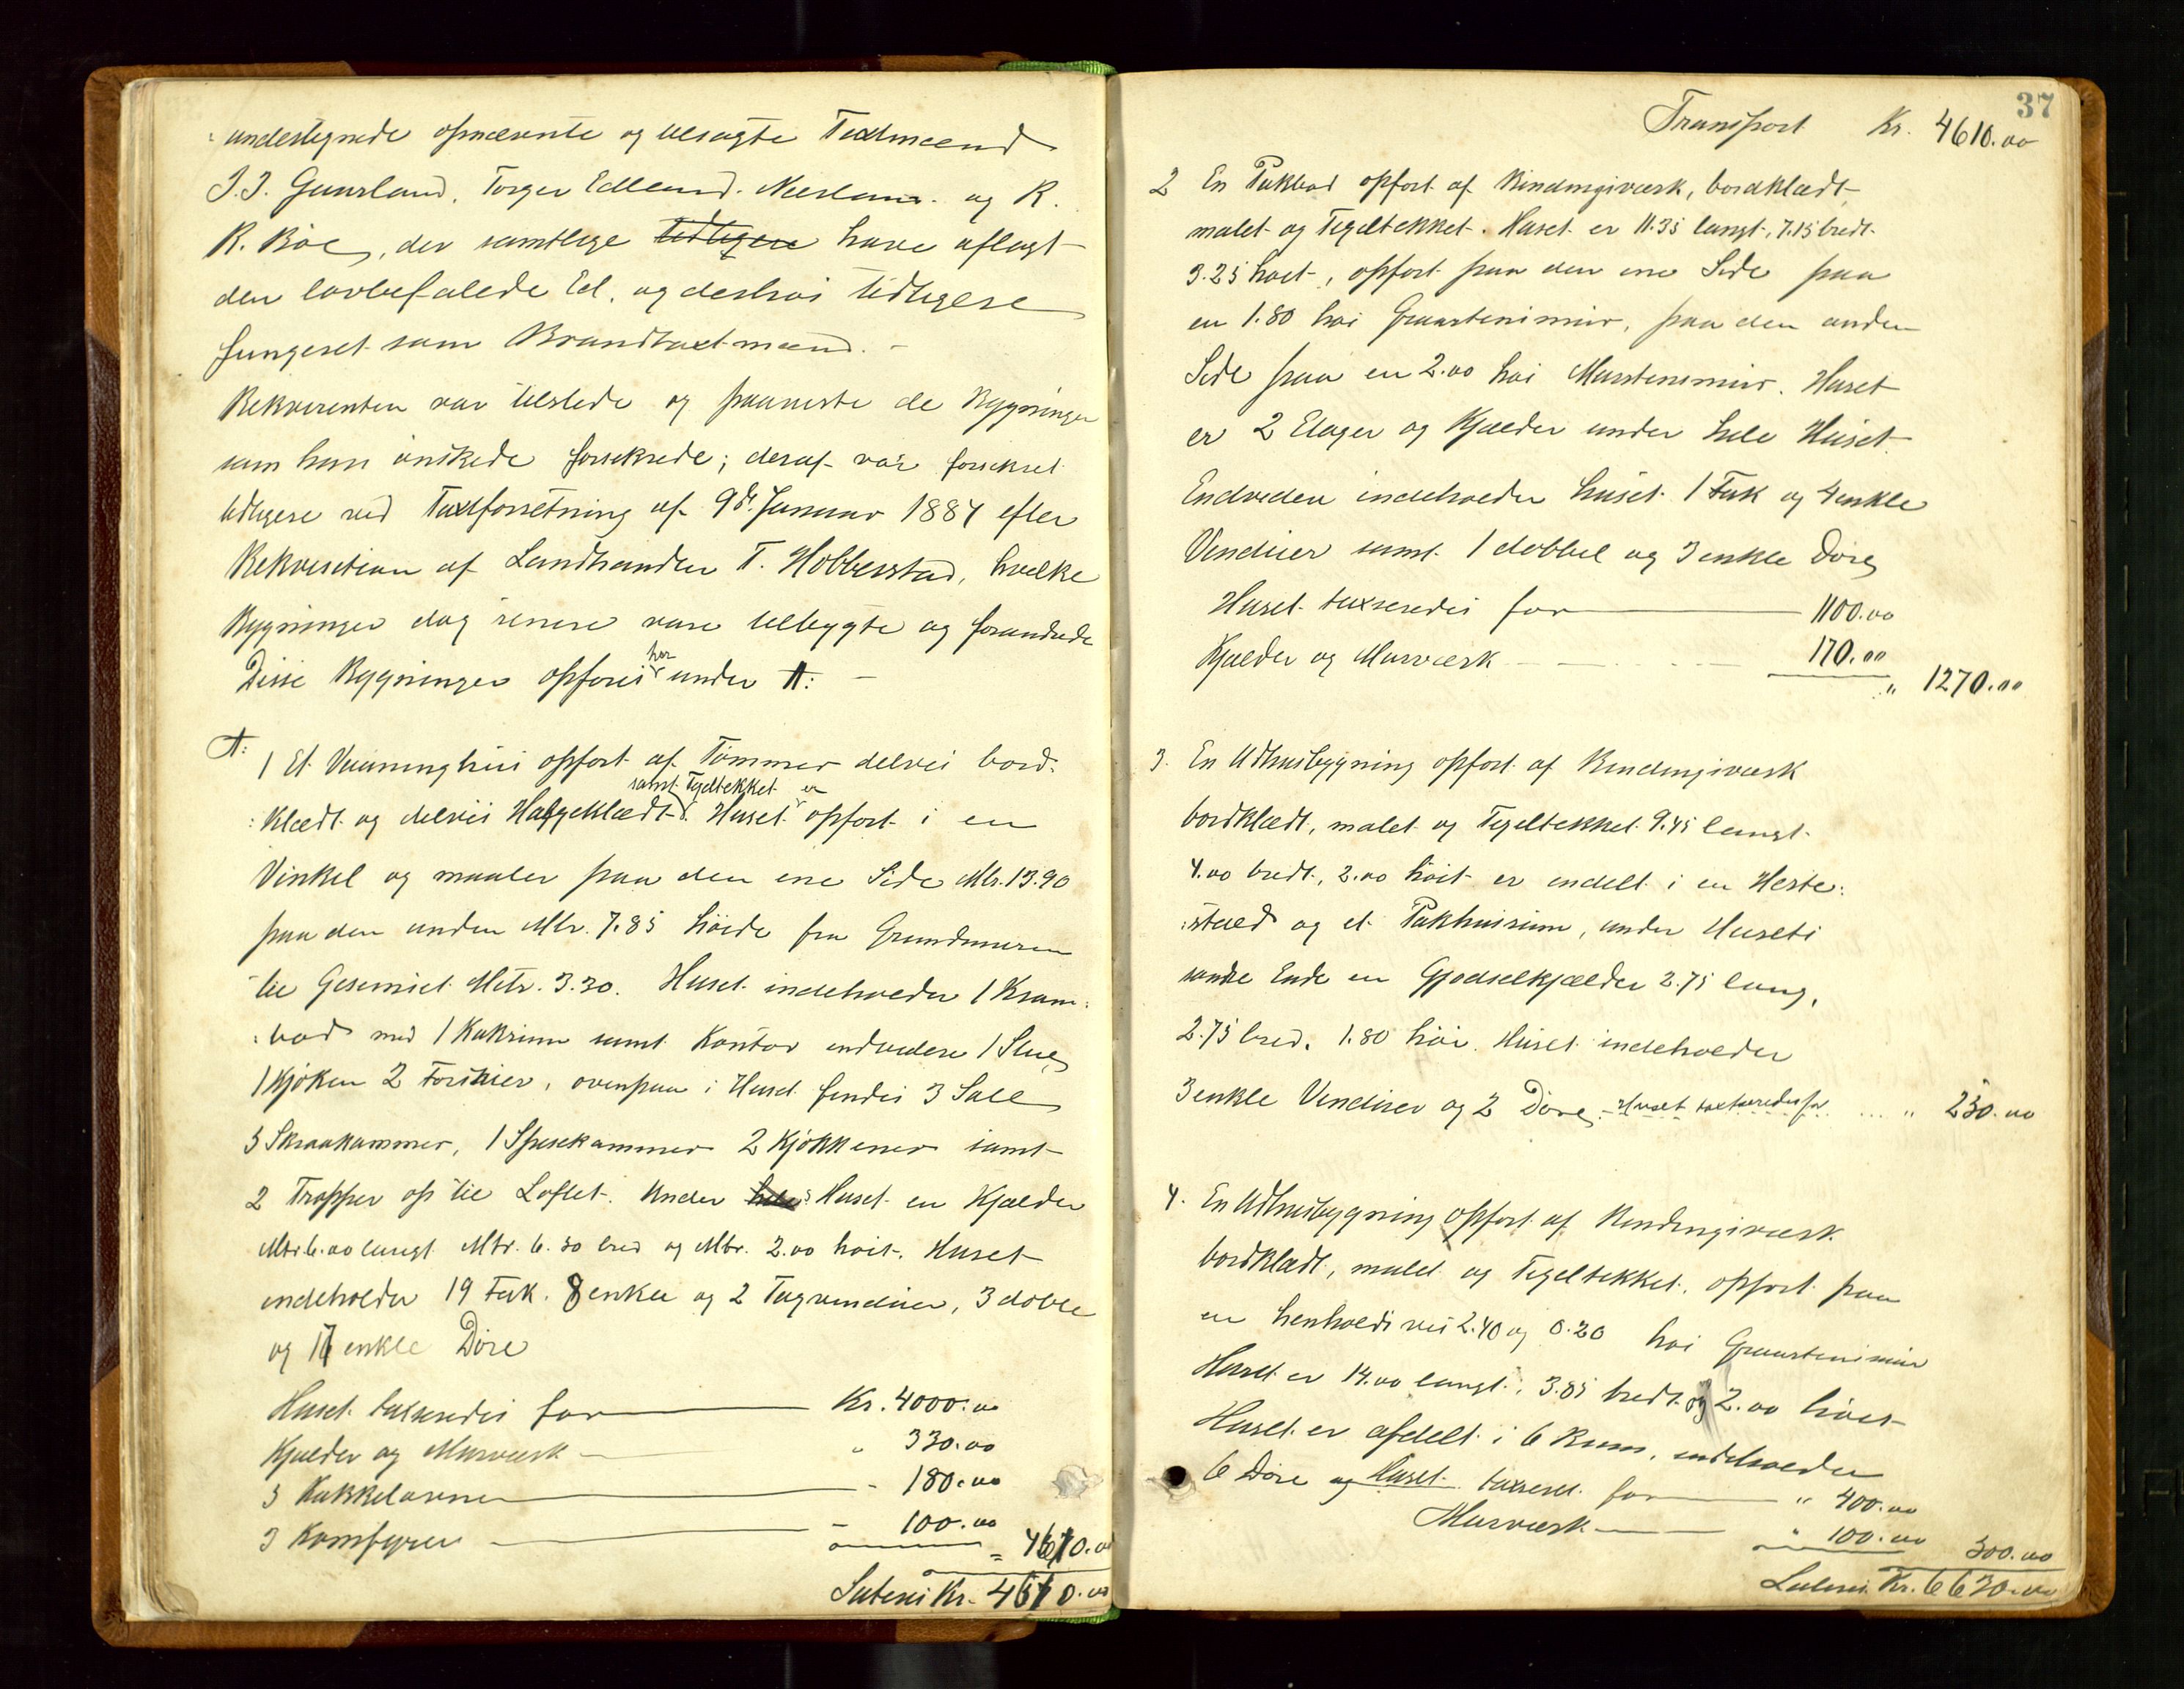 undertegnede opnævnte og tilsagte Taxtmænd
J.J. Gausland, Torger Edland Nærland og R.
R. Böe, der samtlige tidligere have aflagt
den lovbefalede Ed, og desforuden tidligere
fungeret som Brandtaxtmænd. -
Rekvirenten var tilstede og paaviste de Bygninger
som han önskede forsikrede; deraf var forsikret
tidligere ved Taxtforretning af 9de Januar 1884 efter
Rekvisition af Landhandler T. Hobberstad, hvilke
Bygninger dog senere vare tilbygte og forandrede
Disse Bygninger opföres her under A: -
A: 1 Et Vaaningshus opfört af Tömmer delvis bord-
samt Tegltekket er
:klædt og delvis Helgeklædt. Huset opfört i en
Vinkel og maaler paa den ene Side Mtr. 13.90
paa den anden Mtr. 7.85 höide fra Grundmuren
til Gesemset Mtr. 3.30. Huset indeholder 1 Kram:
:bod med 1 Kakrum samt Kontor endvidere 1 Stue,
1 Kjöken 2 Forstuer, ovenpaa i Huset findes 3 Sale
3 Skraakammer, 1 Spisekammer 2 Kjökkener samt
2 Trapper op til Loftet. Under hele Huset en Kjælder
Mtr. 6.00 langt Mtr. 6.30 bred og Mtr. 2.00 höit. Huset
indeholder 19 Fak. 8 enkle og 2 Tagvinduer, 3 doble
og 17 enkle Döre
Huset taxseredes for Kr. 4000.00
Kjælder og Murværk " 330.00
3 Kakkelovne - 180.00
3 Komfyrer - 100.00 = 4610.00
Lateris Kr. 4610.00
37
Transport Kr. 4610.00
2 En Pakbod opfört af Bindingsværk, bordklædt,
malet og Tegeltekket. Huset er 11.35 langt, 7.15 bredt
3.25 höit, opfört paa den ene Side paa
en 1.80 höi Graastensmur, paa den anden
Side paa en 2.00 höi Murstensmur. Huset
er 2 Etager og Kjælder under hele Huset.
Endvidere indeholder huset 1 Fak og 4 enkle
Vinduer samt 1 dobbel og 3 enkle Döre,
Huset taxseredes for 1100.00
Kjælder og Murværk 170.00
" 1270.00
3. En Udhusbygning opfört af Bindingsværk
bordklædt, malet og Tegeltekket 9.45 langt
4.00 bredt, 2.00 höit er indelt i en Heste:
:stald og et Pakhusrum, under Husets
söndre Ende en Gjödselkjælder 2.75 lang,
2.75 bred, 1.80 höi. Huset indeholder
3 enkle Vinduer og 2 Döre, - Huset taxseredes for " 250.00
4. En Udhusbygning opfört af Bindingsværk
bordklædt, malet og Tegeltekket, opfört paa
en henholdsvis 2.40 og 0.20 höi Graastensmur
Huset er 14.00 langt, 3.85 bredt og 2.00 höit
Huset er afdelt i 6 Rum, indeholder
6 Döre og Huset taxseret for " 400.00
Murværk " 100.00 500.00
Lateris Kr. 6630.00